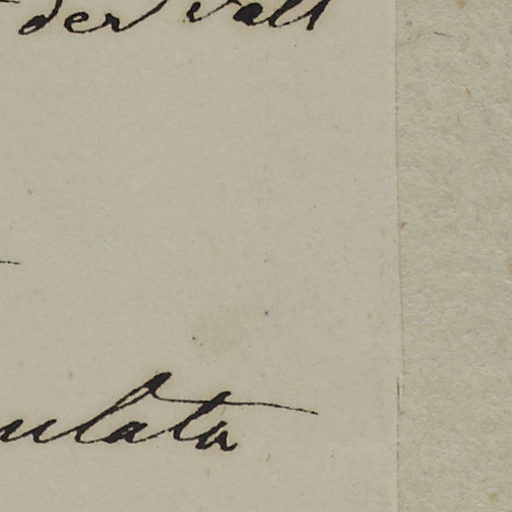 der Vall
ulata